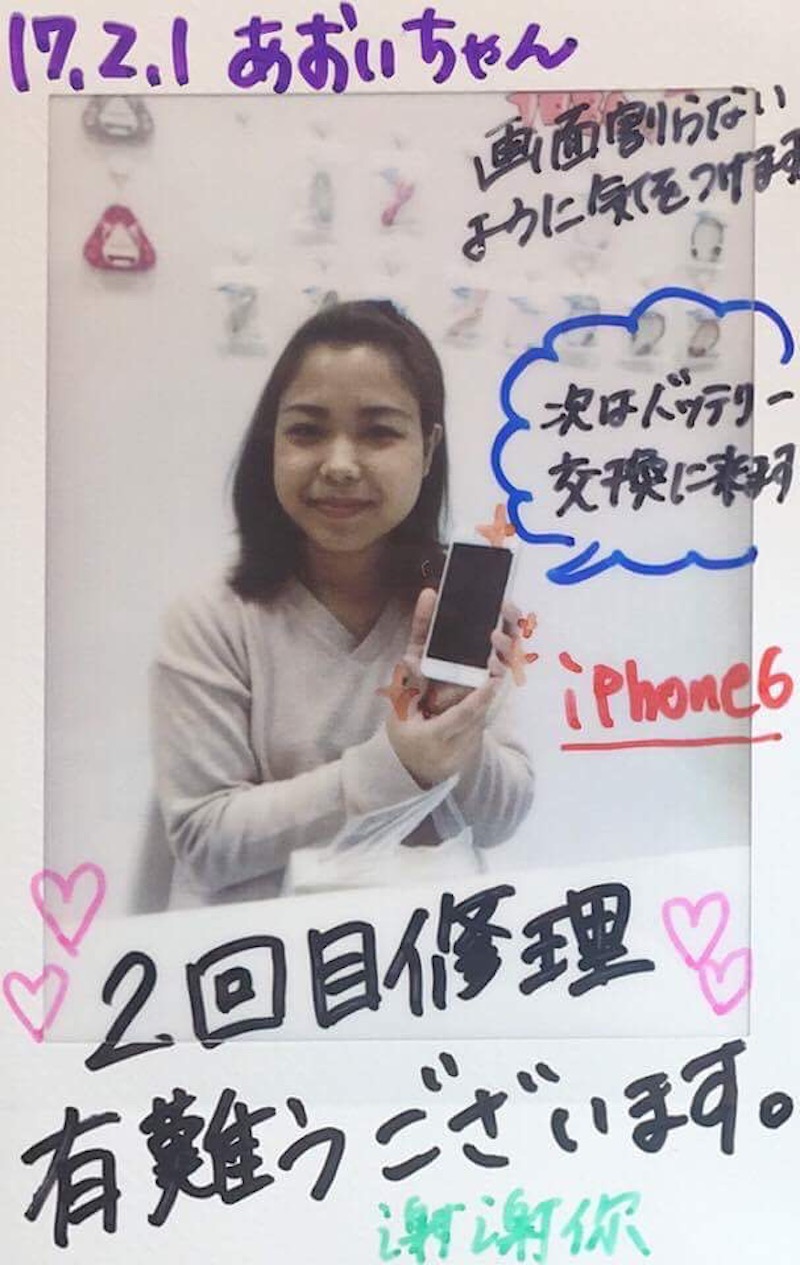 17.2.1 あおいちゃん
画面割らない
ように気をつけます
次はバッテリー
交換に来ます
iPhone6
2回目修理
有難うございます。
谢谢你